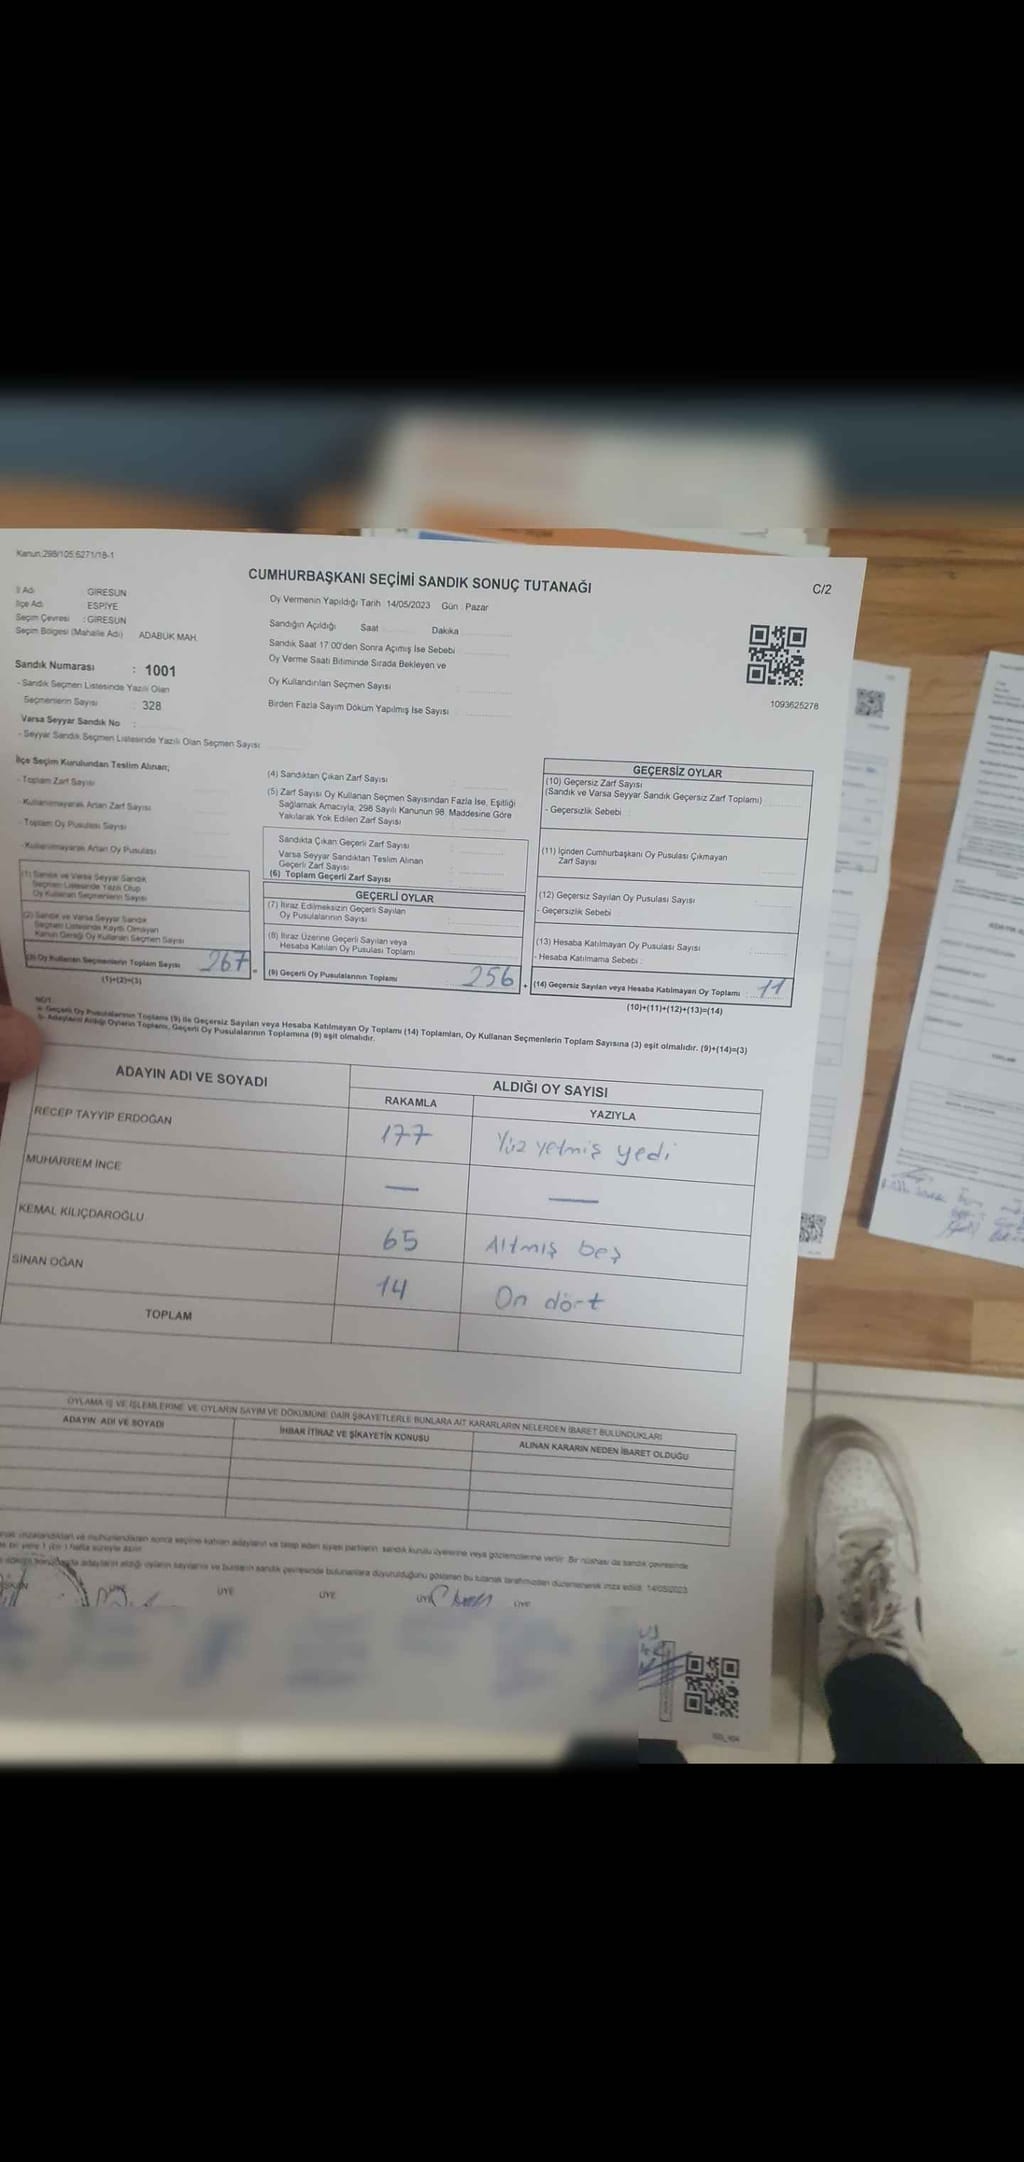 Kanun:298/105;6271/18-1
CUMHURBAŞKANI SEÇİMİ SANDIK SONUÇ TUTANAĞI
C/2
İl Adı : GİRESUN
İlçe Adı : ESPİYE
Seçim Çevresi : GİRESUN
Seçim Bölgesi (Mahalle Adı) ADABUK MAH.
Sandık Numarası : 1001
- Sandık Seçmen Listesinde Yazılı Olan
Seçmenlerin Sayısı : 328
Varsa Seyyar Sandık No :
- Seyyar Sandık Seçmen Listesinde Yazılı Olan Seçmen Sayısı
Oy Vermenin Yapıldığı Tarih 14/05/2023 Gün : Pazar
Sandığın Açıldığı Saat Dakika
Sandık Saat 17:00'den Sonra Açımış İse Sebebi
Oy Verme Saati Bitiminde Sırada Bekleyen ve
Oy Kullandırılan Seçmen Sayısı
Birden Fazla Sayım Döküm Yapılmış İse Sayısı
1093625278
İlçe Seçim Kurulundan Teslim Alınan;
- Toplam Zarf Sayısı
- Kullanılmayarak Artan Zarf Sayısı
- Toplam Oy Pusulası Sayısı
- Kullanılmayarak Artan Oy Pusulası
(1) Sandık ve Varsa Seyyar Sandık
Seçmen Listesinde Yazılı Olup
Oy Kullanan Seçmenlerin Sayısı
(2) Sandık ve Varsa Seyyar Sandık
Seçmen Listesinde Kayıtlı Olmayan
Kanun Gereği Oy Kullanan Seçmen Sayısı
(3) Oy Kullanan Seçmenlerin Toplam Sayısı 267 =
(1)+(2)=(3)
(4) Sandıktan Çıkan Zarf Sayısı
(5) Zarf Sayısı Oy Kullanan Seçmen Sayısından Fazla İse, Eşitliği
Sağlamak Amacıyla, 298 Sayılı Kanunun 98. Maddesine Göre
Yakılarak Yok Edilen Zarf Sayısı
Sandıkta Çıkan Geçerli Zarf Sayısı
Varsa Seyyar Sandıktan Teslim Alınan
Geçerli Zarf Sayısı
(6) Toplam Geçerli Zarf Sayısı
GEÇERLİ OYLAR
(7) İtiraz Edilmeksizin Geçerli Sayılan
Oy Pusulalarının Sayısı
(8) İtiraz Üzerine Geçerli Sayılan veya
Hesaba Katılan Oy Pusulası Toplamı
(9) Geçerli Oy Pusulalarının Toplamı 256 +
GEÇERSİZ OYLAR
(10) Geçersiz Zarf Sayısı
(Sandık ve Varsa Seyyar Sandık Geçersiz Zarf Toplamı)
- Geçersizlik Sebebi :
(11) İçinden Cumhurbaşkanı Oy Pusulası Çıkmayan
Zarf Sayısı
(12) Geçersiz Sayılan Oy Pusulası Sayısı
- Geçersizlik Sebebi
(13) Hesaba Katılmayan Oy Pusulası Sayısı
- Hesaba Katılmama Sebebi :
(14) Geçersiz Sayılan veya Hesaba Katılmayan Oy Toplamı : 11
(10)+(11)+(12)+(13)=(14)
NOT:
a- Geçerli Oy Pusulalarının Toplamı (9) ile Geçersiz Sayılan veya Hesaba Katılmayan Oy Toplamı (14) Toplamları, Oy Kullanan Seçmenlerin Toplam Sayısına (3) eşit olmalıdır. (9)+(14)=(3)
b- Adayların Aldığı Oyların Toplamı, Geçerli Oy Pusulalarının Toplamına (9) eşit olmalıdır.
ADAYIN ADI VE SOYADI ALDIĞI OY SAYISI
RAKAMLA YAZIYLA
RECEP TAYYİP ERDOĞAN 177 Yüz yetmiş yedi
MUHARREM İNCE — —
KEMAL KILIÇDAROĞLU 65 Altmış beş
SİNAN OĞAN 14 On dört
TOPLAM
OYLAMA İŞ VE İŞLEMLERİNE VE OYLARIN SAYIM VE DÖKÜMÜNE DAİR ŞİKAYETLERLE BUNLARA AİT KARARLARIN NELERDEN İBARET BULUNDUKLARI
ADAYIN ADI VE SOYADI İHBAR İTİRAZ VE ŞİKAYETİN KONUSU ALINAN KARARIN NEDEN İBARET OLDUĞU
imzalandıktan ve mühürlendikten sonra seçime katılan adayların ve talep eden siyasi partilerin sandık kurulu üyelerine veya gözlemcilerine verilir. Bir nüshası da sandık çevresinde
hafta süreyle asılır.
adayların aldığı oyların sayılarını ve bunların sandık çevresinde bulunanlara duyurulduğunu gösteren bu tutanak tarafımızdan düzenlenerek imza edildi. 14/05/2023
ÜYE ÜYE ÜYE ÜYE ÜYE